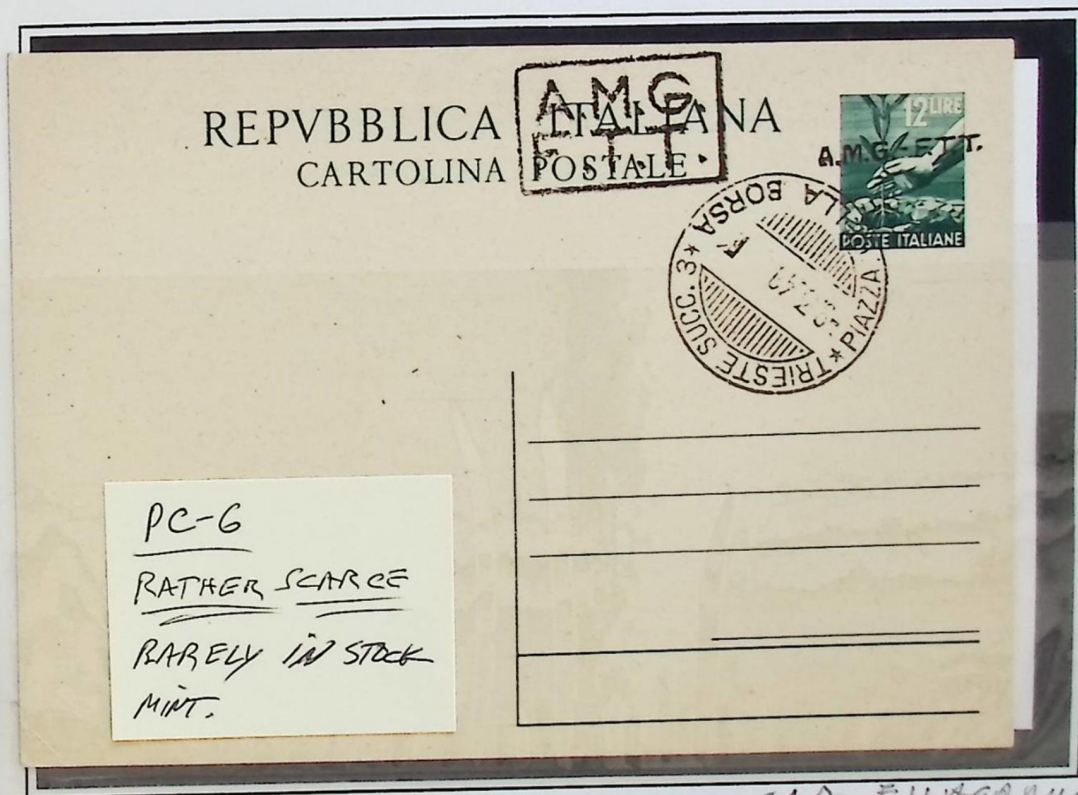 REPVBBLICA ITALIANA
CARTOLINA POSTALE
A.M.G.
F.T.T.
12 LIRE
A.M.G.-F.T.T.
POSTE ITALIANE
* TRIESTE SUCC. 3 *
PIAZZA DELLA BORSA
PC-6
RATHER SCARCE
RARELY IN STOCK
MINT.